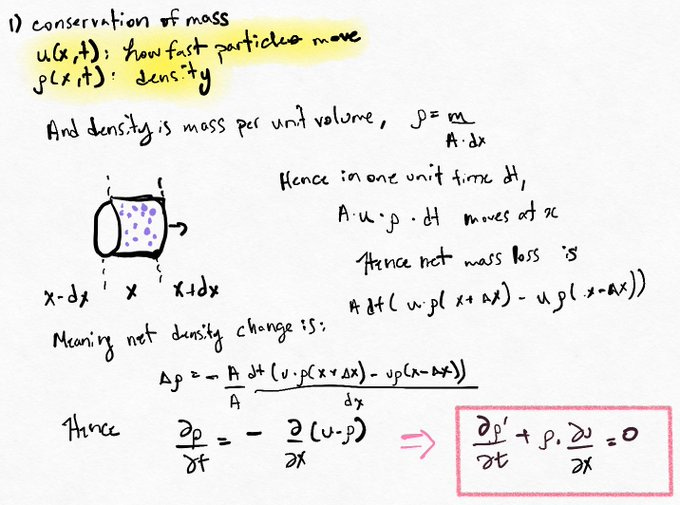 1) conservation of mass
u(x,t): how fast particles move
ρ(x,t): density
And density is mass per unit volume, ρ = m / A·dx
Hence in one unit time dt,
A·u·ρ·dt moves at x
Hence net mass loss is
A dt( u·ρ( x + Δx) - uρ( x-Δx))
x-dx x x+dx
Meaning net density change is:
Δρ = - A/A dt (u·ρ(x+Δx) - uρ(x-Δx)) / dx
Hence ∂ρ/∂t = - ∂/∂x (u·ρ) ⇒ ∂ρ'/∂t + ρ. ∂u/∂x = 0